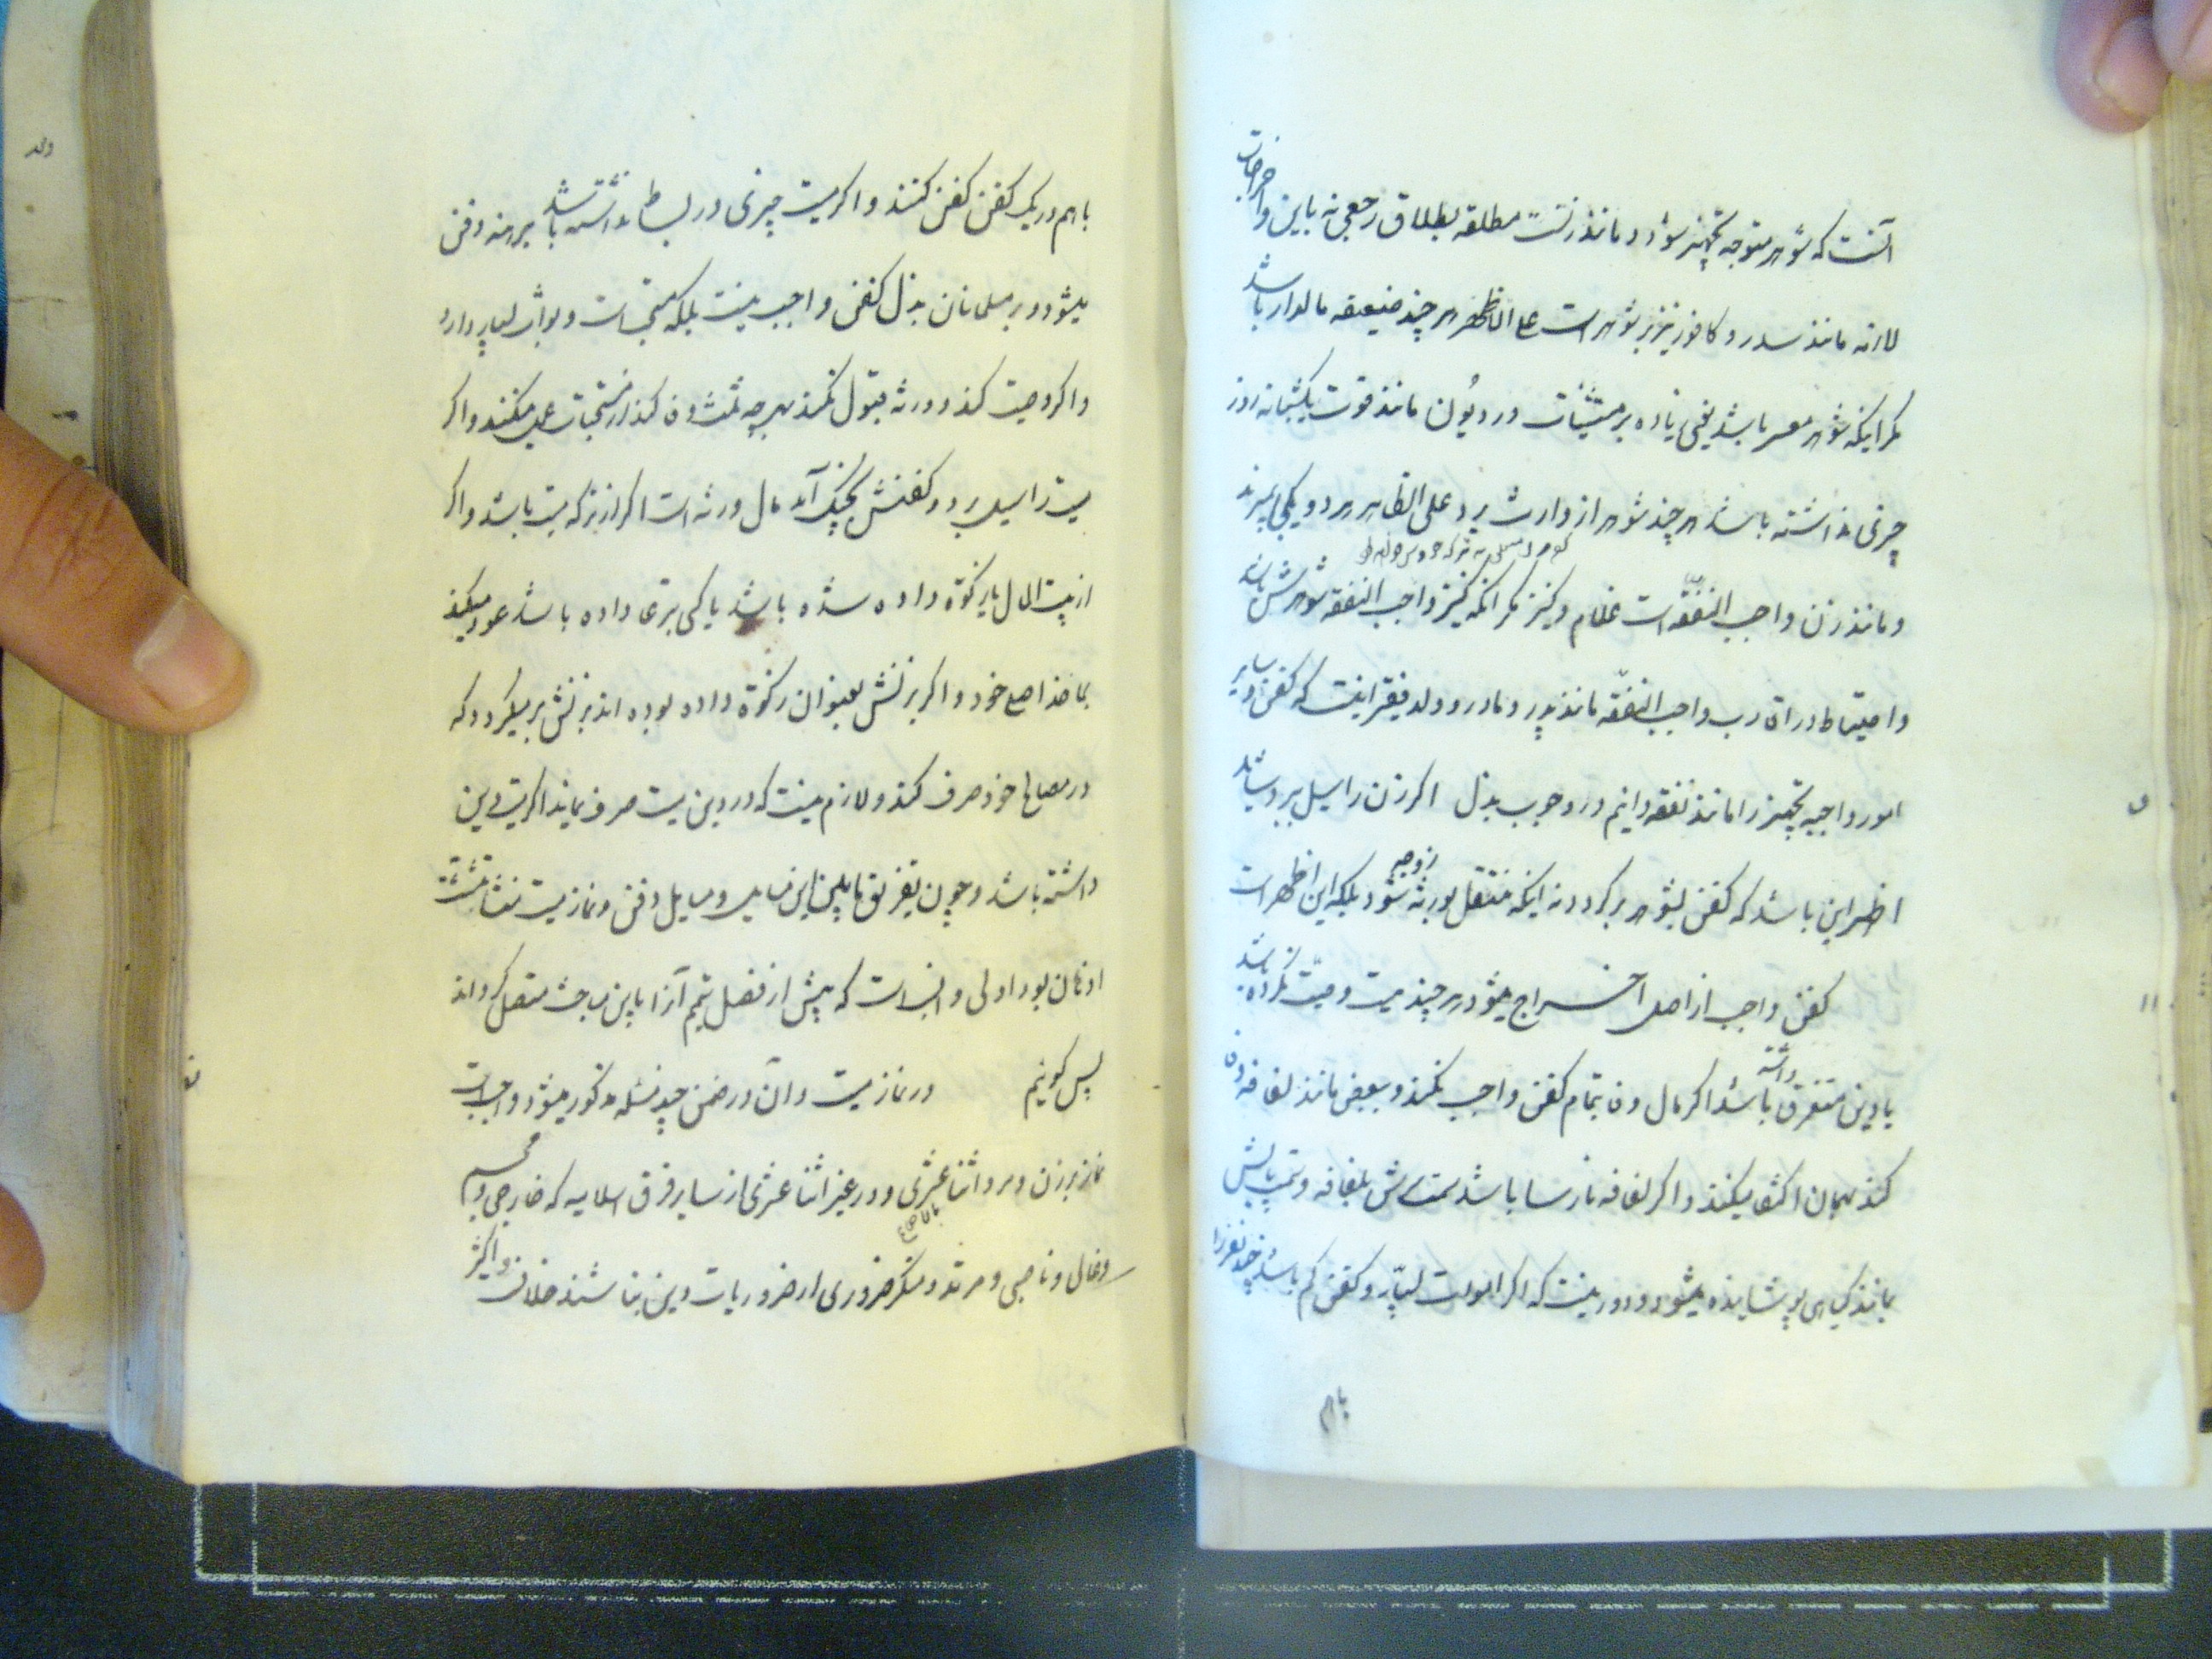 آنست که شوهر متوجه تجهیز شود و مانند زنست مطلقه بطلاق رجعی نه باین و اخراجات
لازمه مانند سدر و کافور نیز بر شوهر است علی الاظهر هر چند ضعیفه مالدار باشد
مکر اینکه شوهر معسر باشد یعنی زیاده بر مستثنیات در دیون مانند قوت یکشبانه روز
چیزی نداشته باشد هر چند شوهر از وارث برد علی الظاهر هر دو یکی بمیرند
و مانند زن واجب النفقه است غلام و کنیز مکر انکه کنیز واجب النفقه شوهرش باشد
و احتیاط در اقارب واجب النفقه مانند پدر و مادر و ولد فقیر اینست که کفن و سایر
امور واجبه تجهیز را مانند نفقه دانیم در وجوب بذل اکر زن را سیل ببرد شاید
اظهر این باشد که کفن بشوهر بر کردد نه اینکه منتقل بورثه زوجه شود بلکه این اظهر است
کفن واجب از اصل اخراج میشود هر چند میت وصیت نکرده باشد
یا دین متفرق داشته باشد اکر مال وفا بتمام کفن واجب نکند و ببعض مانند لفافه وفا
کند بهمان اکتفا میکنند و اکر لفافه نارسا باشد سمت سرش بلفافه و سمت پایش
بمانند کیاهی پوشانیده میشود و دور نیست که اکر اموات بسیار و کفن کم باشد چند نفر را
باهم
باهم در یک کفن کفن کنند و اکر میت چیزی در بساط نداشته باشد برهنه دفن
میشود و بر مسلمانان بذل کفن واجب نیست بلکه مستحب است و ثواب بسیار دارد
و اکر وصیت کند و ورثه قبول نکنند بهر چه ثلث وفا کند از مستحبات عمل میکنند و اکر
میت را سیل برد و کفنش بچنک آمد مال ورثه است اکر از ترکه میت باشد و اکر
از بیت المال یا زکوة داده شده باشد یا کسی تبرعا داده باشد عود میکند
بماخذ اصلی خود و اکر بزنش بعنوان زکوة داده بوده اند بزنش بر میکردد که
در مصالح خود صرف کند و لازم نیست که در دین میت صرف نماید اکر میت دین
داشته باشد و چون تفریق مابین این مسایل و مسایل دفن و نماز میت منشا تشتت
اذهان بود اولی و انسب است که پیش از فصل تیمم آنرا باین مباحث متصل کرداند
پس کوئیم در نماز میت و آن در ضمن چند مسئله مذکور میشود واجب است
نماز بر زن و مرد اثنا عشری و در غیر اثنا عشری از سایر فرق اسلامیه که خارجی و مجسم
و غالی و ناصبی و مرتد و منکر ضروری از ضروریات دین نباشند خلاف و اکثر